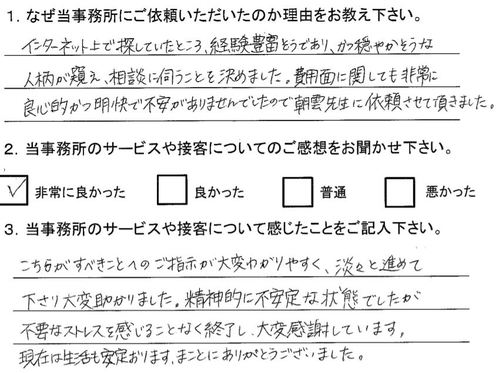 1. なぜ当事務所にご依頼いただいたのか理由をお教え下さい。
インターネット上で探していたところ、経験豊富そうであり、かつ穏やかそうな
人柄が窺え、相談に伺うことを決めました。費用面に関しても非常に
良心的かつ明快で不安がありませんでしたので朝雲先生に依頼させて頂きました。
2. 当事務所のサービスや接客についてのご感想をお聞かせ下さい。
✓ 非常に良かった □ 良かった □ 普通 □ 悪かった
3. 当事務所のサービスや接客について感じたことをご記入下さい。
こちらがすべきことへのご指示が大変わかりやすく、淡々と進めて
下さり大変助かりました。精神的に不安定な状態でしたが
不要なストレスを感じることなく終了し、大変感謝しています。
現在は生活も安定おります。まことにありがとうございました。